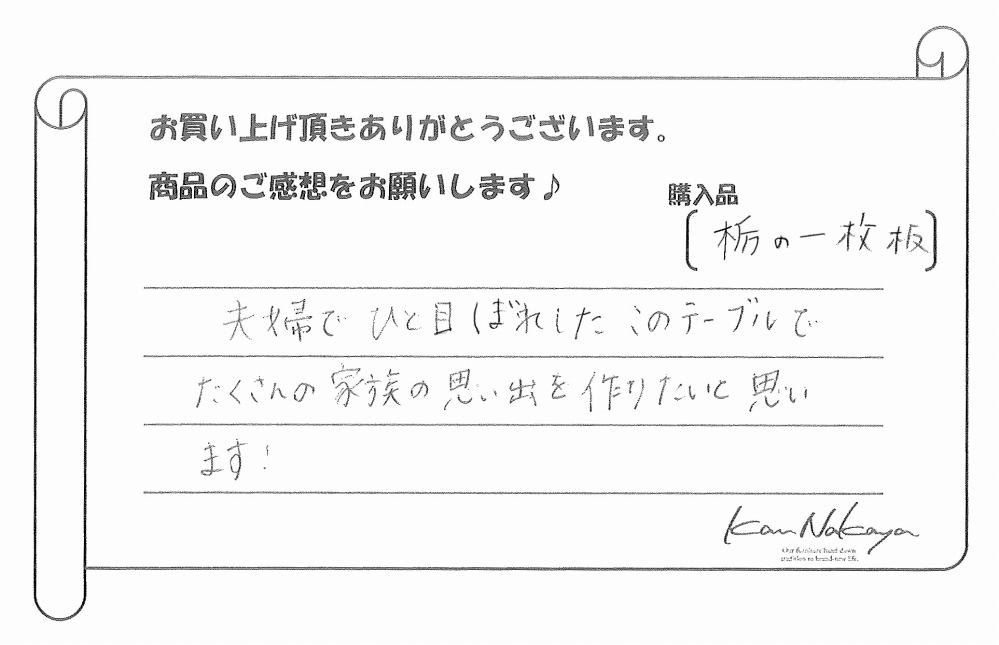 お買い上げ頂きありがとうございます。
商品のご感想をお願いします♪
購入品
[栃の一枚板]
夫婦でひと目ぼれしたこのテーブルで
たくさんの家族の思い出を作りたいと思い
ます!
Kan Nakaya
Our furniture hand down
tradition to brand-new life.